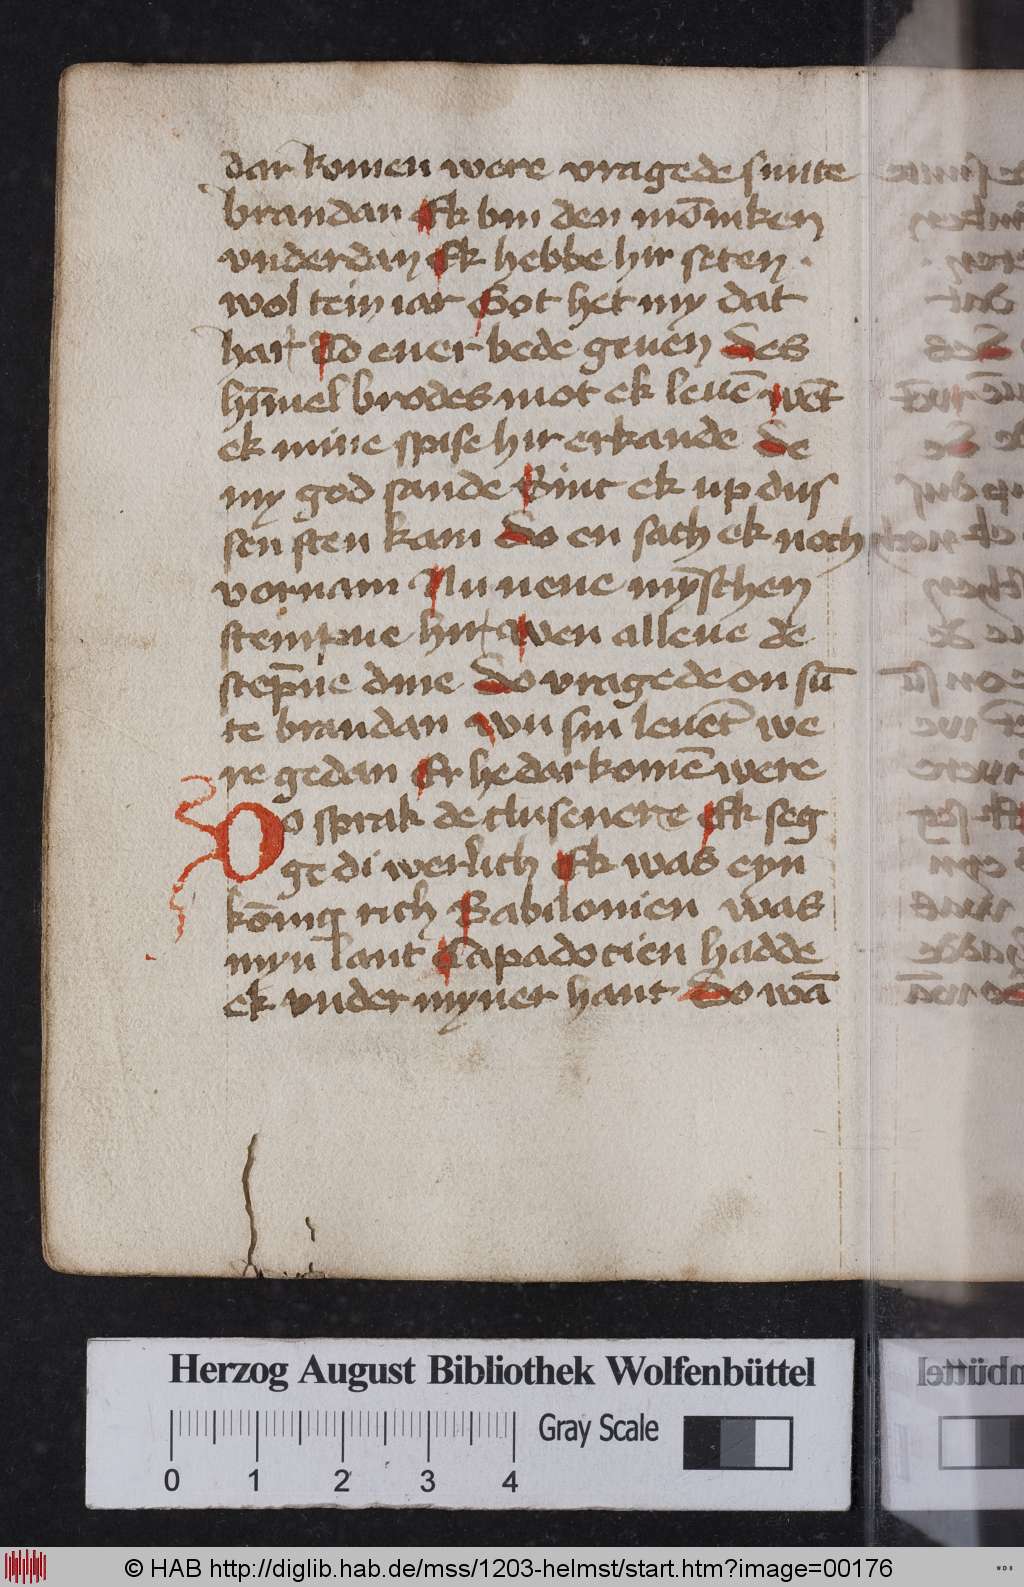 dar komen were vragede sunte
brandan Ek bin den mōniken
vnderdan Ek hebbe hir seten ·
wol tein iar Got het my dat
har To euer bede geuen Des
hīmel brodes mot ek leuē wēt
ek mine spise hir erkande De
my god sande Sint ek up dus
sen sten kam Do en sach ek noch
vornam Nu nene mȳschen
stempne hir Wen allene de
step̄ne dine Do vragede on sū
te brandan wu sin leuēt we
re gedan Er he dar komē were
Do sprak de clusenere Ek seg
ge di werlich Ek was eyn
kōnīg rich Babilonien was
myn lant Capadocien hadde
ek vnder myner hant Do wā
Herzog August Bibliothek Wolfenbüttel
Gray Scale
0 1 2 3 4
© HAB http://diglib.hab.de/mss/1203-helmst/start.htm?image=00176